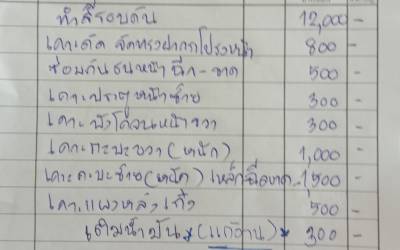 ทำสีรอบคัน 12,000 -
เคาะดัด จัดทรงฝากระโปรงหน้า 800 -
ซ่อมกันชนหน้าฉีก - ขาด 500 -
เคาะประตูหน้าซ้าย 300 -
เคาะบังโคลนหน้าขวา 300 -
เคาะกะบะขวา (หนัก) 1,000 -
เคาะกะบะซ้าย (หนัก) เหล็กฉีกขาด 1,500 -
เคาะแผงหลังเก๋ง 500 -
เติมน้ำมัน * (แก๊ 300 -